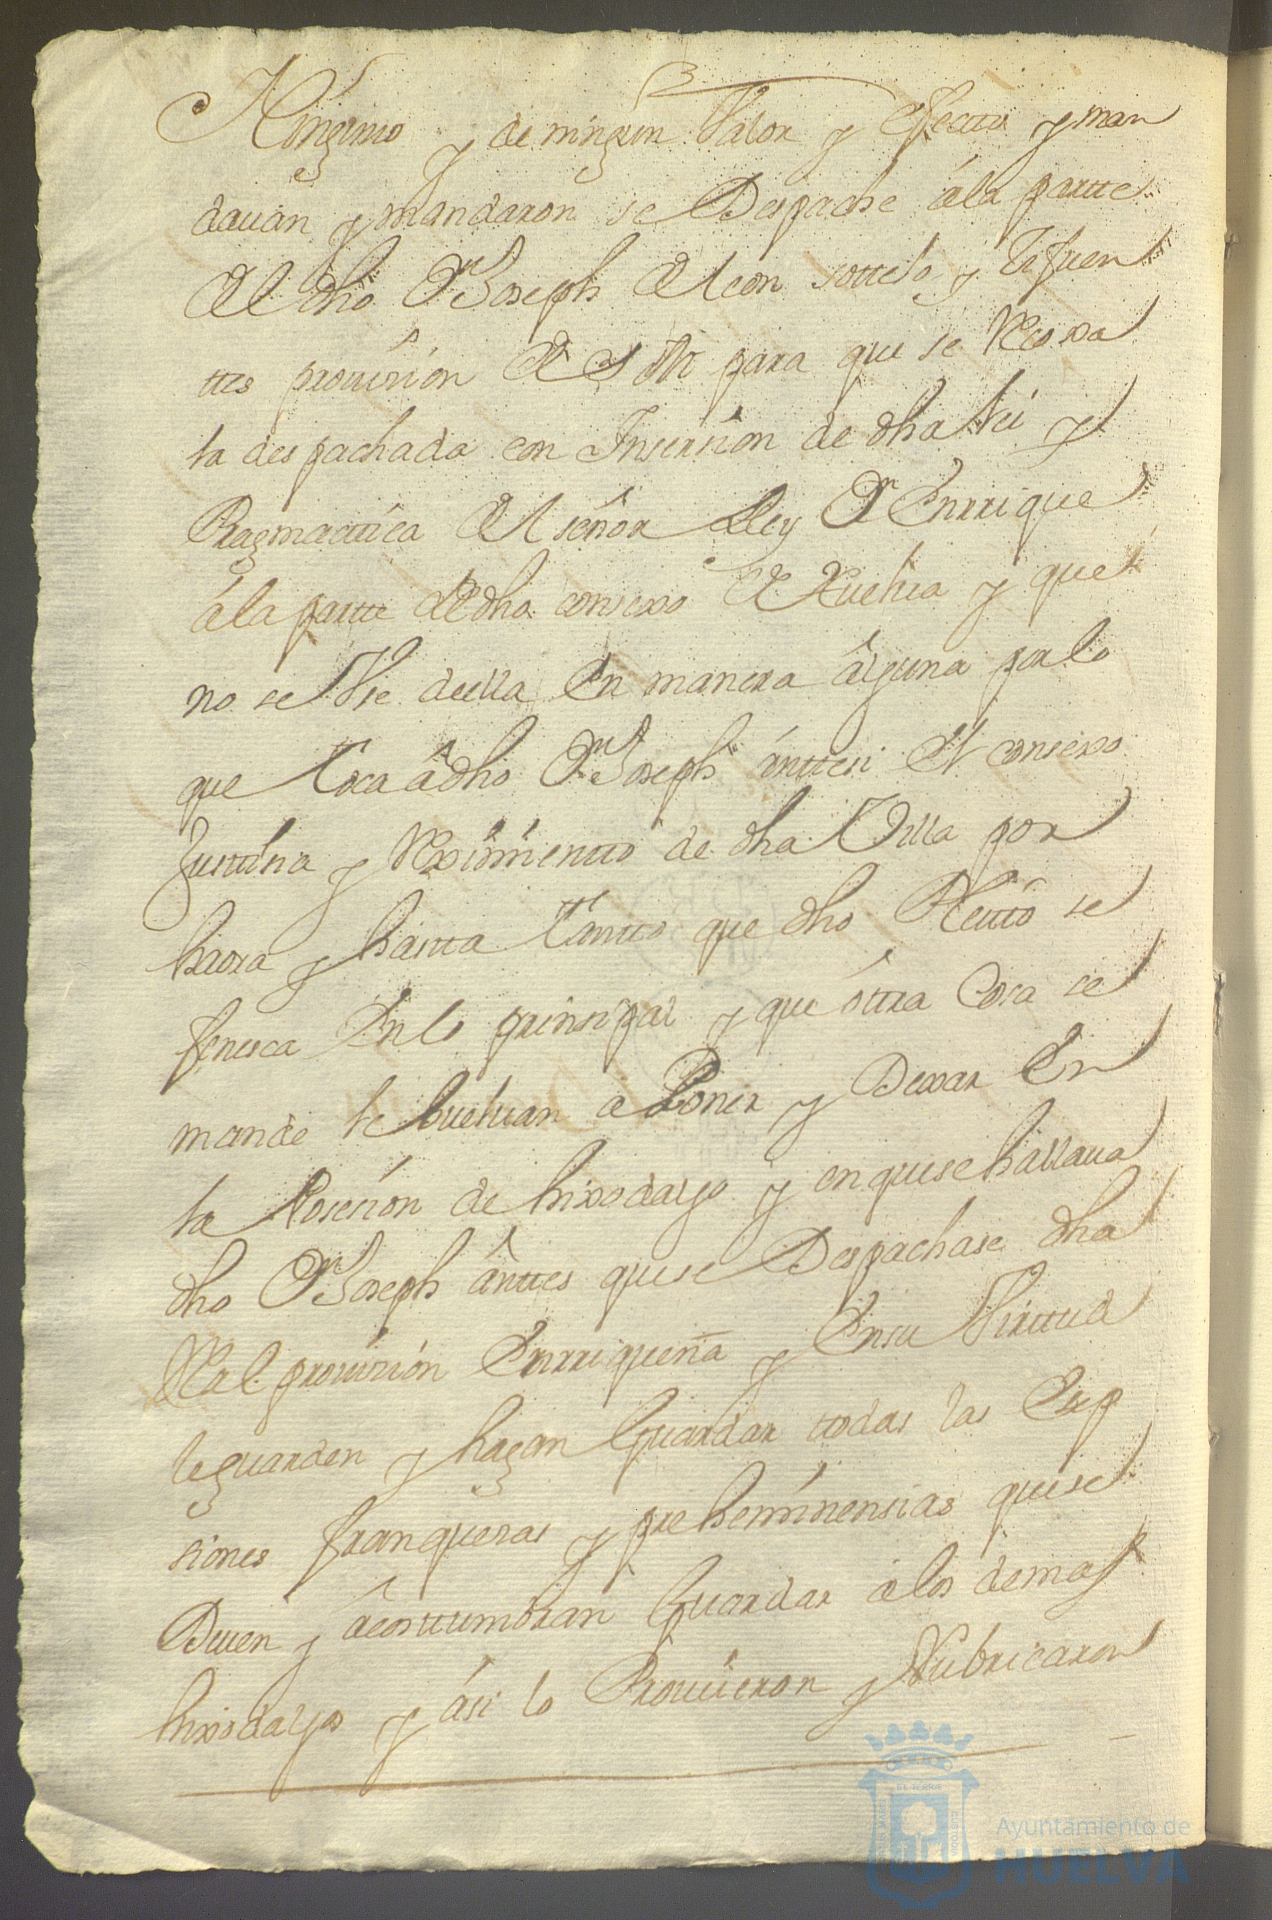 Ningino y de ningun Valor y efectto y man
dauan y mandaron se Despache âla partte
del dho Dn Joseph de leon sottelo y Zifuen
ttes prouision de S M para que se Recoxa
la despachada con Insersion de dha lei y
Pragmattica del señor Rey Dn Enrrique
âla partte de dho consexo de Huelua y que
no se Vse della En manera âlguna por lo
que toca âdho Dn Joseph ântte si El consexo
Justtisia y Reximientto de dha Villa por
haora y hastta tantto que dho Pleitto se
fenesca En lo prinsipal y que ôttra Cosa se
mande le bueluan a Poner y Dexar En
la Posesion de hixodalgo y en que se hallaua
dho Dn Joseph ânttes que se Despachase dha
Rl. prouision Enrriqueña y En su Virttud
le guarden y hagan Guardar ttodas las Exsep
siones franquesas y preheminensias que se
Deuen y âcosttumbran Guardar â los demas
hixosdalgo y âsi lo Prouieron y Rubricaron
Ayuntamiento de
HUELVA